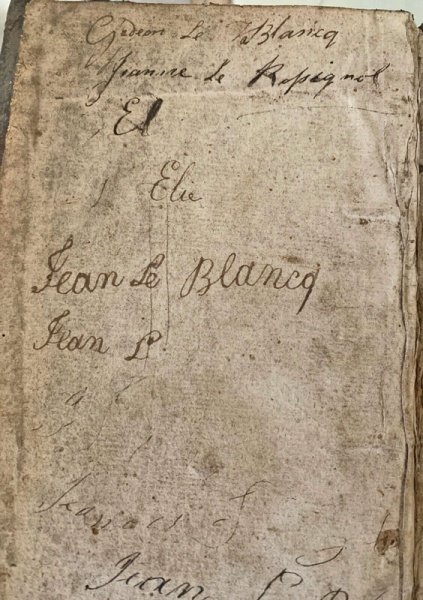 Gedeon Le Blancq
Jeanne Le Rosignol
El
Elie
Jean Le Blancq
Jean L
Jean